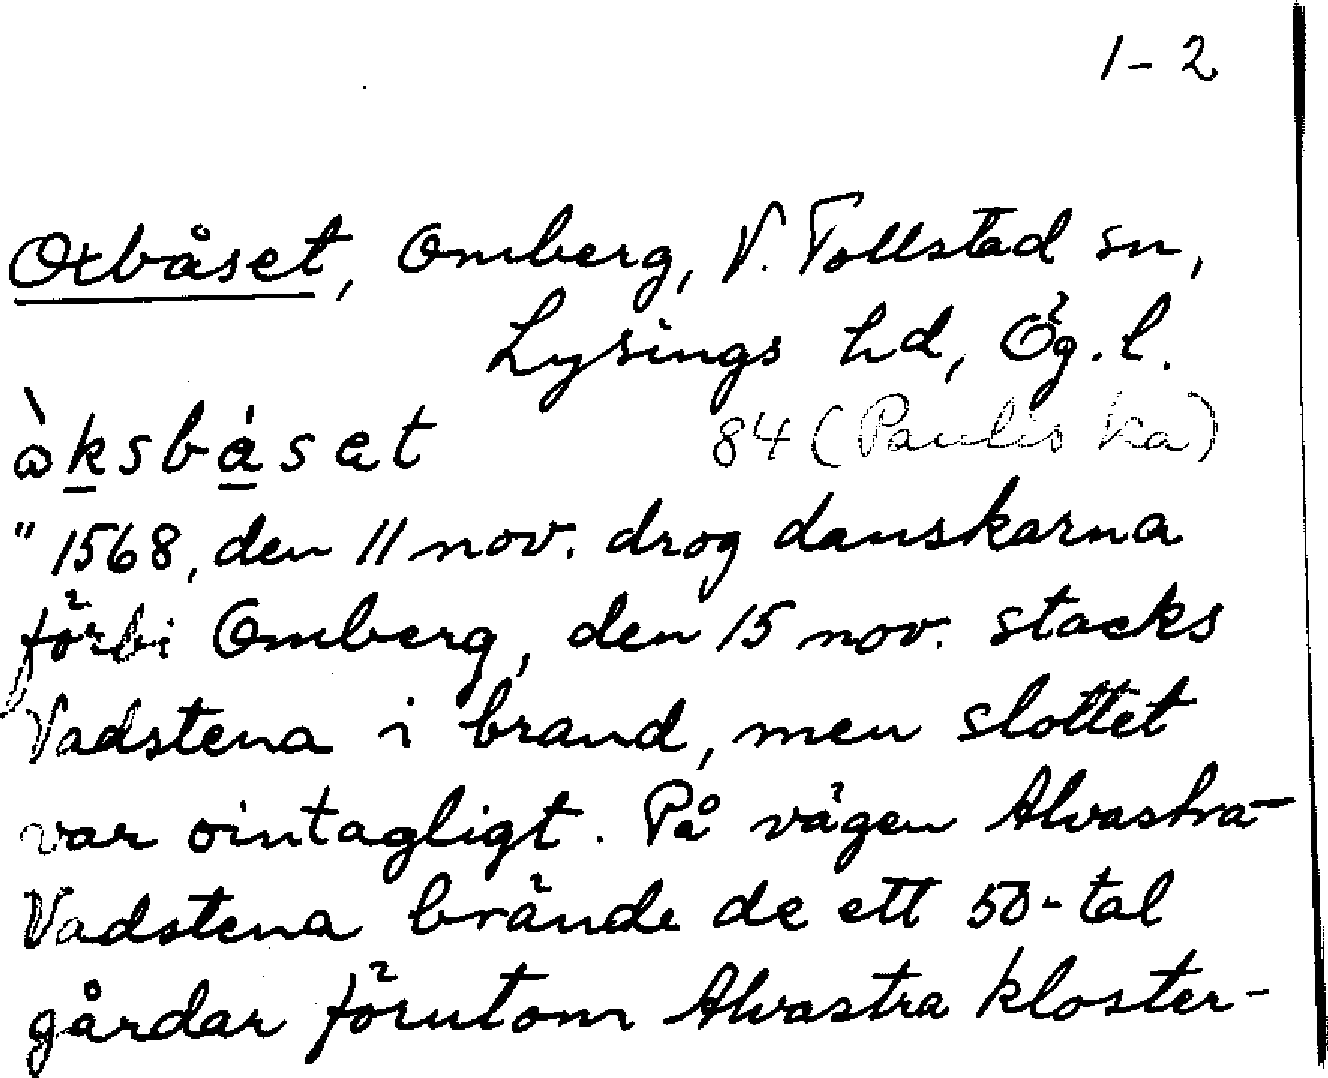 1-2
Oxbåset, Omberg, V. Tollstad sn,
Lysings hd, Ög. l.
òksbåset 84 (Paulis ka)
" 1568, den 11 nov. drog danskarna
förbi Omberg, den 15 nov. stacks
Vadstena i brand, men slottet
var ointagligt. På vägen Alvastra-
Vadstena brände de ett 50-tal
gårdar förutom Alvastra kloster-